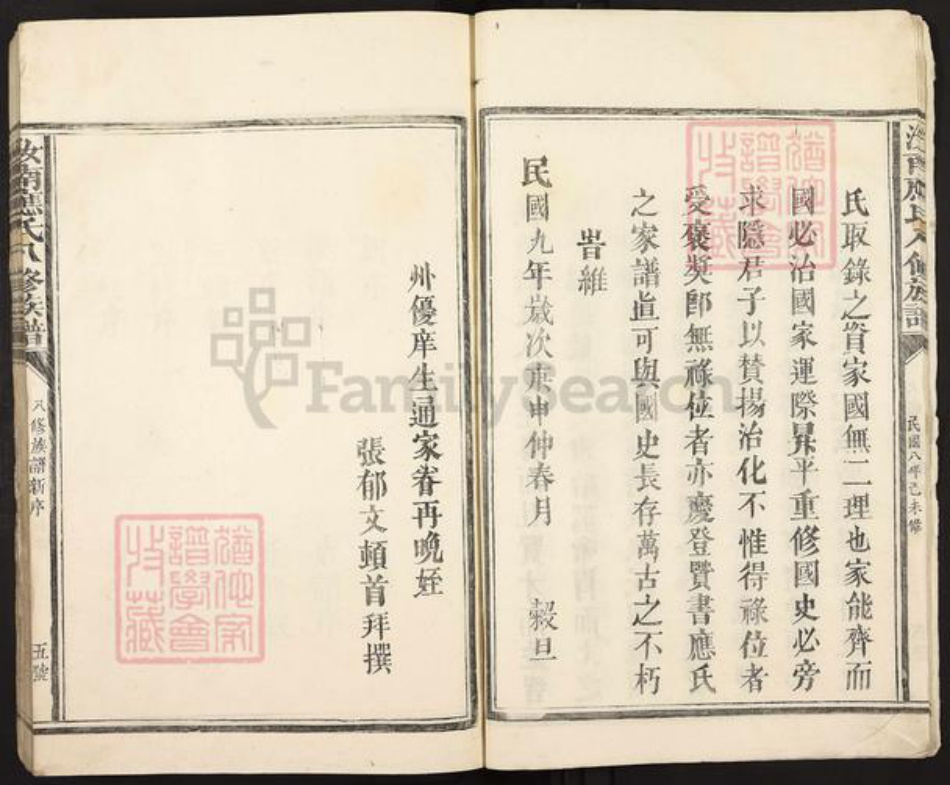 汝南應氏八修族譜
民國八年己未修
氏取錄之資家國無二理也家能齊而
國必治國家運際昇平重修國史必旁
求隱君子以贊揚治化不惟得祿位者
受褒奬卽無祿位者亦慶登賢書應氏
之家譜直可與國史長存萬古之不朽
旹維
民國九年歲次庚申仲春月　穀旦
州優庠生通家眷再晚姪
張郁文頓首拜撰
汝南應氏八修族譜
八修族譜新序
五號
猶他家譜學會收藏
猶他家譜學會收藏
FamilySearch